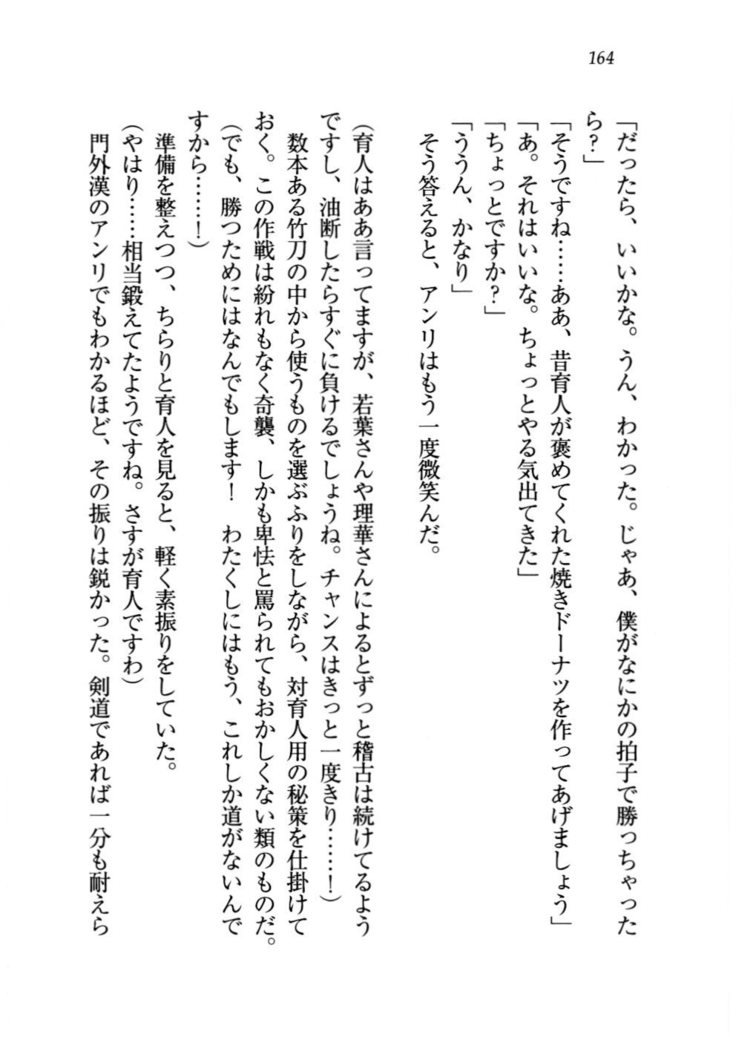 164
「だったら、いいかな。うん、わかった。じゃあ、僕がなにかの拍子で勝っちゃった
ら？」
「そうですね……ああ、昔育人が褒めてくれた焼きドーナツを作ってあげましょう」
「あ。それはいいな。ちょっとやる気出てきた」
「ちょっとですか？」
「ううん、かなり」
そう答えると、アンリはもう一度微笑んだ。
（育人はああ言ってますが、若葉さんや理華さんによるとずっと稽古は続けてるよう
ですし、油断したらすぐに負けるでしょうね。チャンスはきっと一度きり……！）
数本ある竹刀の中から使うものを選ぶふりをしながら、対育人用の秘策を仕掛けて
おく。この作戦は紛れもなく奇襲、しかも卑怯と罵られてもおかしくない類のものだ。
（でも、勝つためにはなんでもします！　わたくしにはもう、これしか道がないんで
すから……！）
準備を整えつつ、ちらりと育人を見ると、軽く素振りをしていた。
（やはり……相当鍛えてたようですね。さすが育人ですわ）
門外漢のアンリでもわかるほど、その振りは鋭かった。剣道であれば一分も耐えら